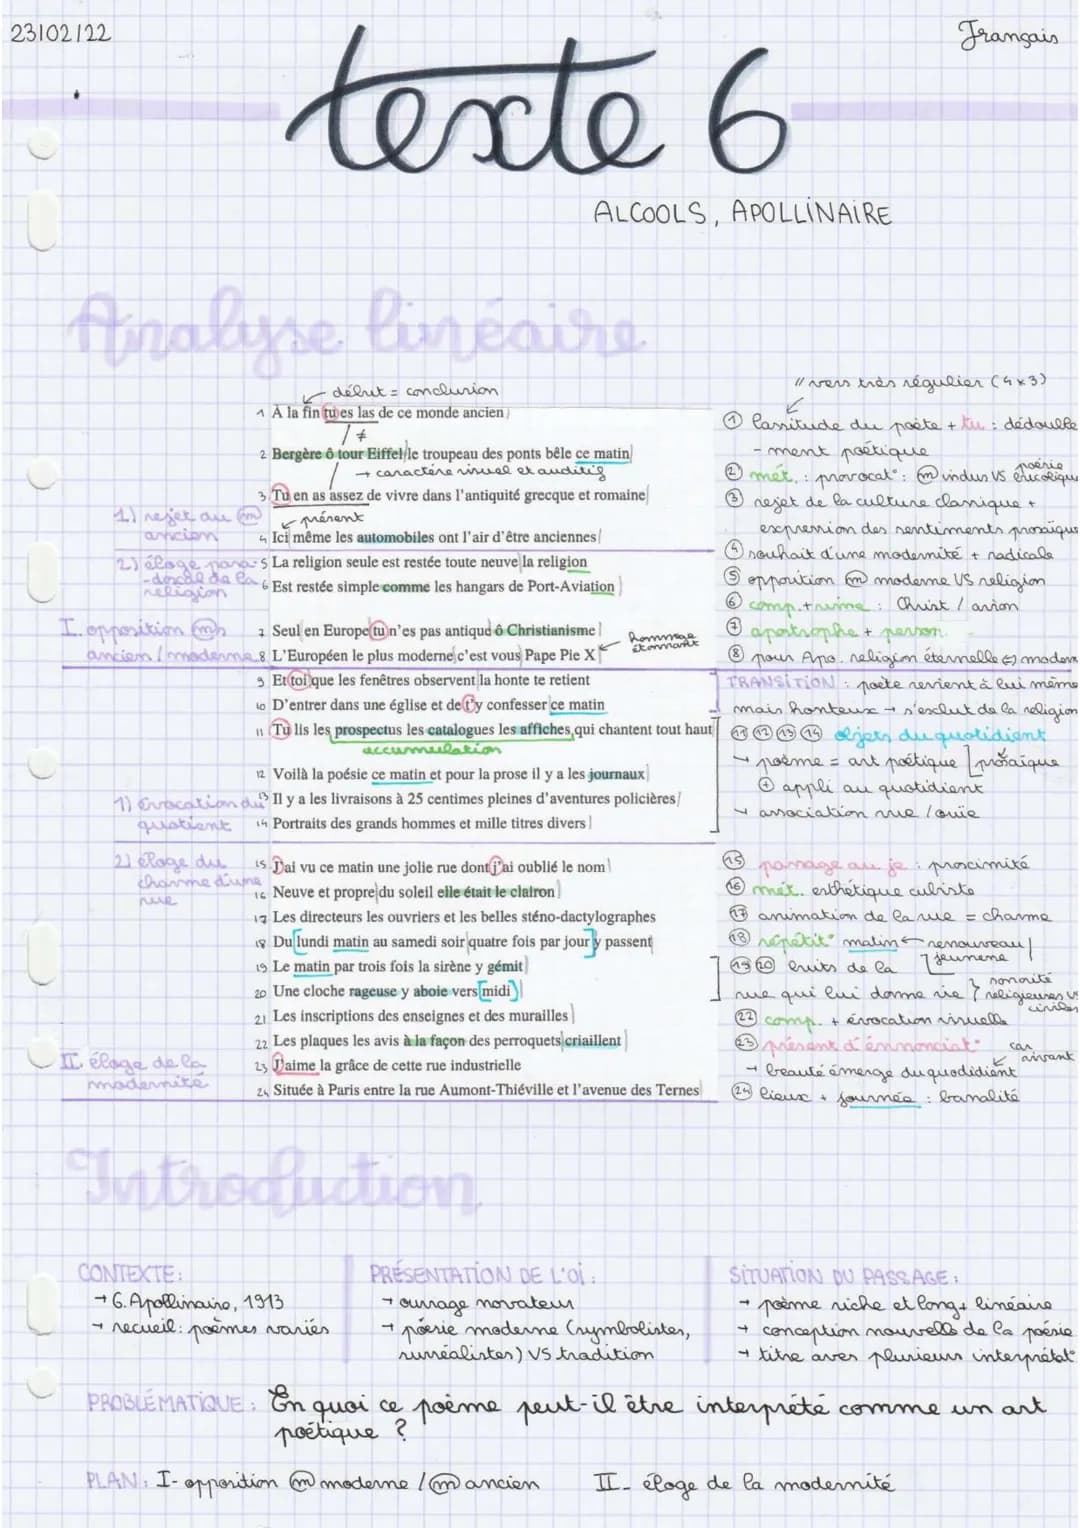 23/02/22
Français
texte 6
ALCOOLS, APOLLINAIRE
Analyse linéaire
début = conclusion
1 À la fin tu es las de ce monde ancien
≠
2 Bergère ô tour Eiffel le troupeau des ponts bêle ce matin
→ caractère visuel et auditif
3 Tu en as assez de vivre dans l'antiquité grecque et romaine
présent
4 Ici même les automobiles ont l'air d'être anciennes
5 La religion seule est restée toute neuve la religion
6 Est restée simple comme les hangars de Port-Aviation
7 Seul en Europe tu n'es pas antique ô Christianisme
hommage étonnant
8 L'Européen le plus moderne c'est vous Pape Pie X
9 Et toi que les fenêtres observent la honte te retient
10 D'entrer dans une église et de t'y confesser ce matin
11 Tu lis les prospectus les catalogues les affiches qui chantent tout haut
accumulation
12 Voilà la poésie ce matin et pour la prose il y a les journaux
13 Il y a les livraisons à 25 centimes pleines d'aventures policières
14 Portraits des grands hommes et mille titres divers
15 J'ai vu ce matin une jolie rue dont j'ai oublié le nom
16 Neuve et propre du soleil elle était le clairon
17 Les directeurs les ouvriers et les belles sténo-dactylographes
18 Du lundi matin au samedi soir quatre fois par jour y passent
19 Le matin par trois fois la sirène y gémit
20 Une cloche rageuse y aboie vers midi
21 Les inscriptions des enseignes et des murailles
22 Les plaques les avis à la façon des perroquets criaillent
23 J'aime la grâce de cette rue industrielle
24 Située à Paris entre la rue Aumont-Thiéville et l'avenue des Ternes
1) rejet du m
ancien
2) éloge para-
-doxal de la
religion
I. opposition m
ancien / moderne
1) évocation du
quotient
2) éloge du
charme d'une
rue
II. éloge de la
modernité
// vers très régulier (4x3)
1 lassitude du poète + tu : dédouble
-ment poétique
2 mét. : provocat° : m indus VS poésie bucolique
3 rejet de la culture classique +
expression des sentiments prosaïque
4 souhait d'une modernité + radicale
5 opposition m moderne VS religion
6 comp. + rime : Christ / avion
7 apostrophe + person.
8 pour Apo. religion éternelle moderne
TRANSITION : poète revient à lui même
mais honteux → s'exclut de la religion
11 12 13 14 objets du quotidient
→ poème = art poétique prosaïque
+ appli au quotidient
→ association vue / ouïe
15 passage au je : proximité
16 mét. esthétique cubiste
17 animation de la rue = charme
18 répétit° matin ← renouveau / jeunesse
19 20 bruits de la
rue qui lui donne vie sonorité religieuses VS civiles
22 comp. + évocation visuelle
23 présent d'énnonciat° car vivant
→ beauté émerge du quodidient
24 lieux + journée : banalité
Introduction
CONTEXTE :
→ G. Apollinaire, 1913
→ recueil : poèmes variés
PRÉSENTATION DE L'OI :
→ ouvrage novateur
→ poésie moderne (symbolistes,
surréalistes) VS tradition
SITUATION DU PASSAGE :
→ poème riche et long + linéaire
→ conception nouvelle de la poésie
→ titre avec plusieurs interprétat°
PROBLÉMATIQUE : En quoi ce poème peut-il être interprété comme un art
poétique ?
PLAN : I- opposition m moderne / m ancien II- éloge de la modernité